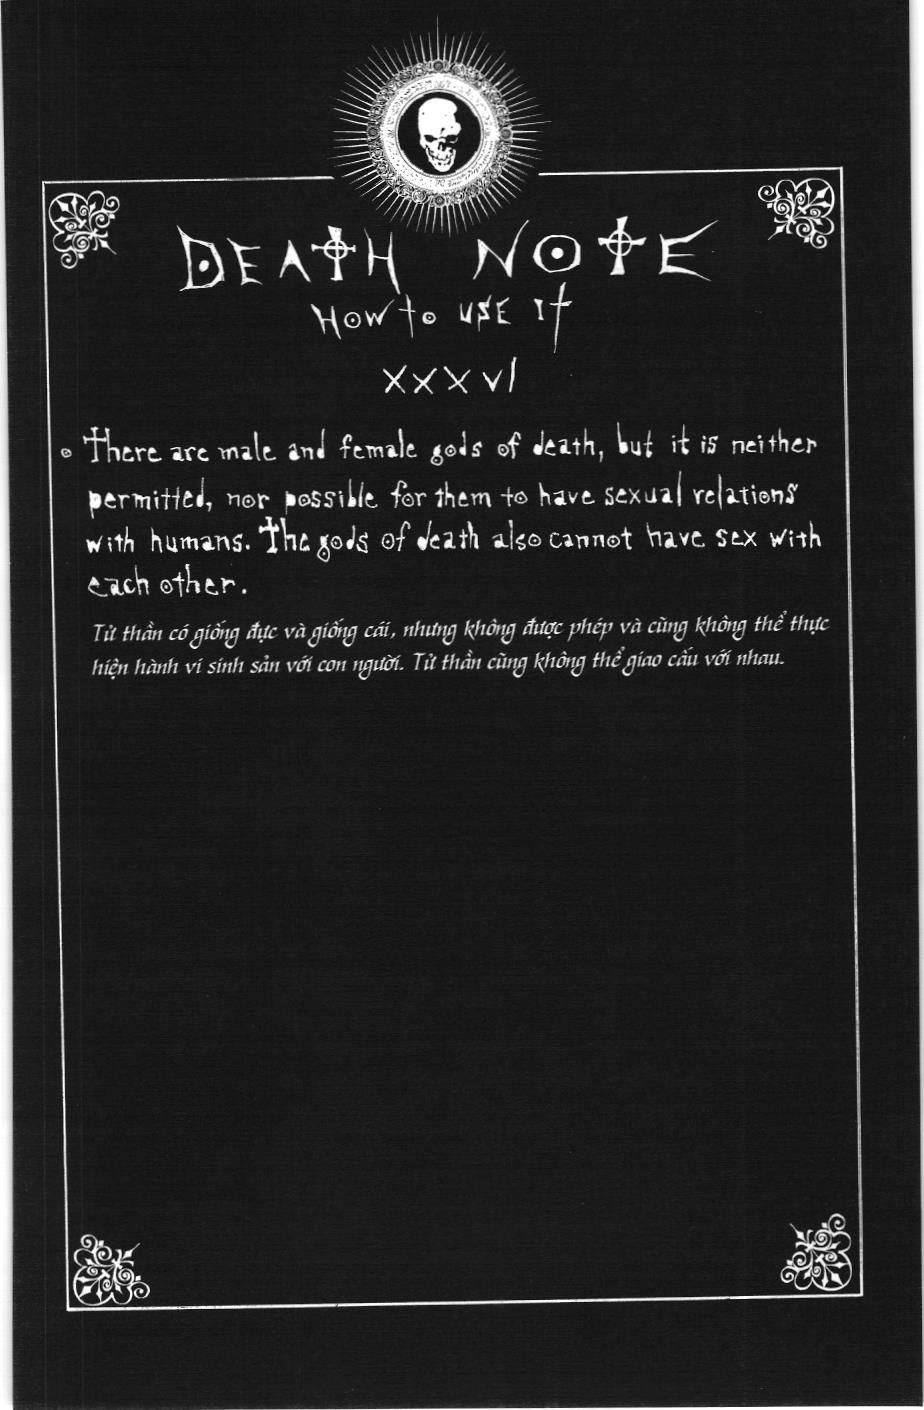 DEATH NOTE
HOW to USE It
XXXVI
There are male and female gods of death, but it is neither
permitted, nor possible for them to have sexual relations
with humans. The gods of death also cannot have sex with
each other.
Tử thần có giống đực và giống cái, nhưng không được phép và cũng không thể thực
hiện hành vi sinh sản với con người. Tử thần cũng không thể giao cấu với nhau.